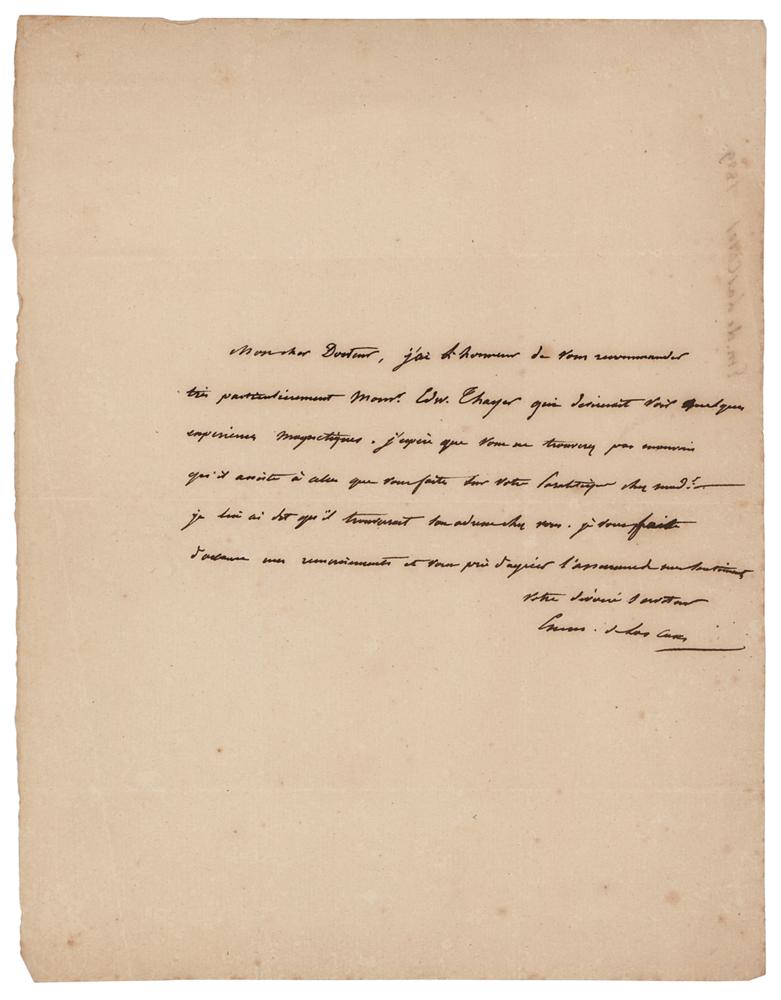 Mon cher Docteur, j'ai l'honneur de vous recommander
très particulièrement Monsr. Edw. Thayer qui desirerait voir quelques
experiences magnetiques. j'espère que vous ne trouverez pas mauvais
qu'il assiste à celles que vous faites sur votre chez mad.e
je lui ai dit qu'il trouverait son adresse chez vous. je vous fait
d'avance mes remerciements et vous prie d'agréer l'assurance des sentiments
votre dévoué serviteur
Emm. de Las Cases